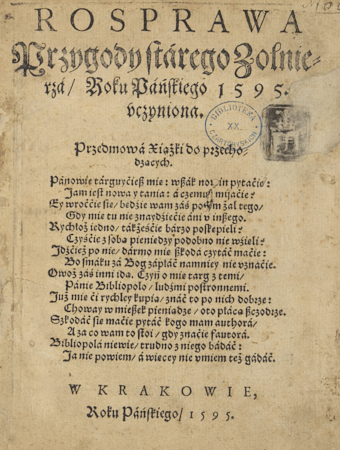 ROSPRAWA
Przygody stárego Zolnie-
rzá/ Roku Páńskiego 1595.
vczyniona.
BIBLIOTEKA
XX.
Przedmowá Xiążki do przecho-
dzących.
Pánowie tárguyćiesz mię: wszák no in pytaćie:
Jam iest nowa y tánia: á czemuż mijaćie?
Ey wroććie sie/ będzie wam zás potym żal tego/
Gdy mie tu nie znaydźiećie áni v inszego.
Rychłoż iedno/ tákżeśćie bárzo pospieszyli?
Czyśćie z sobą pieniędzy podobno nie wźięli?
Jdźćież po nie/ dármo mie szkodá czytáć maćie:
Bo smáku zá Bog zápłáć namniey nie vznaćie.
Owoż zás inni idą. Czyń o mię targ z temi/
Pánie Bibliopolo/ ludźmi postronnemi.
Już mie ći rychley kupią/ znáć to po nich dobrze:
Choway w mieszek pieniądze/ oto płácą szczodrze.
Szkodáć sie maćie pytáć kogo mam authorá/
A zá co wam to stoi/ gdy znaćie fautorá.
Bibliopolá niewie/ trudno z niego bádáć:
Ja nie powiem/ á więcey nie vmiem też gádáć.
W KRAKOWIE,
Roku Páńskiego/ 1595.